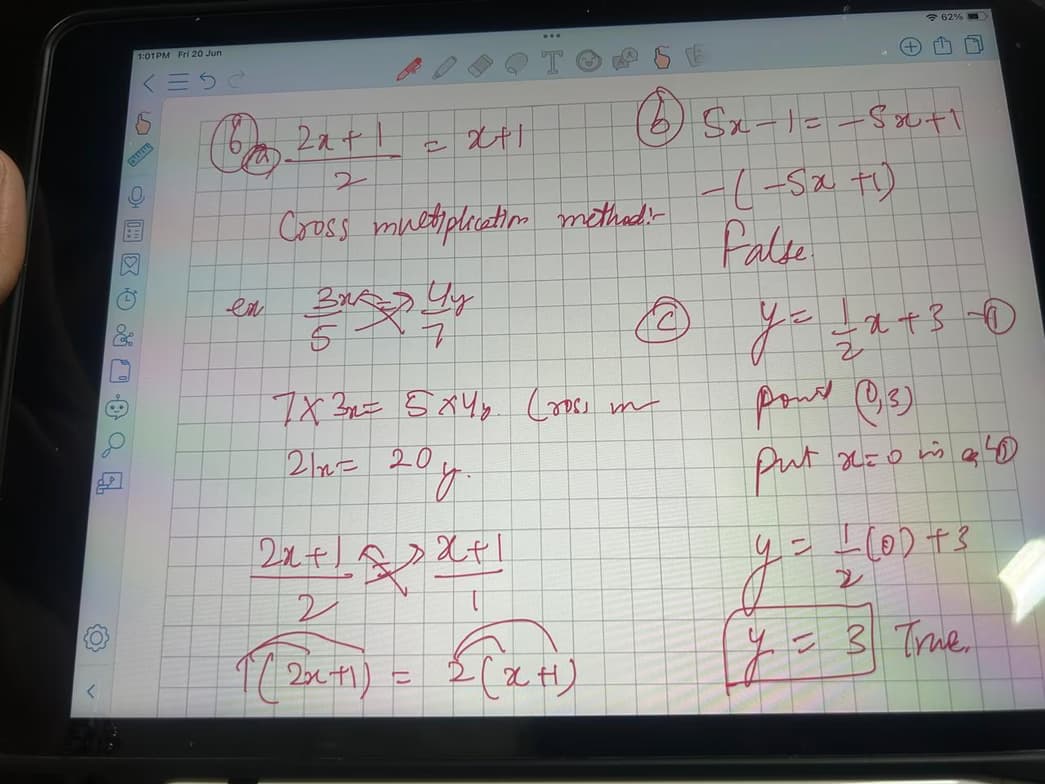 1:01 PM Fri 20 Jun
62%
6 a (2x+1)/2 = x+1
Cross multiplication method:-
ex 3x/5 = 4y/7
7×3x = 5×4y Cross m
21x = 20y.
(2x+1)/2 = (x+1)/1
1(2x+1) = 2(x+1)
b 5x-1 = -5x+1
-(-5x+1)
False.
c y = 1/2 x + 3 -①
point (0,3)
Put x=0 in eq ①
y = 1/2 (0) + 3
y = 3 True.